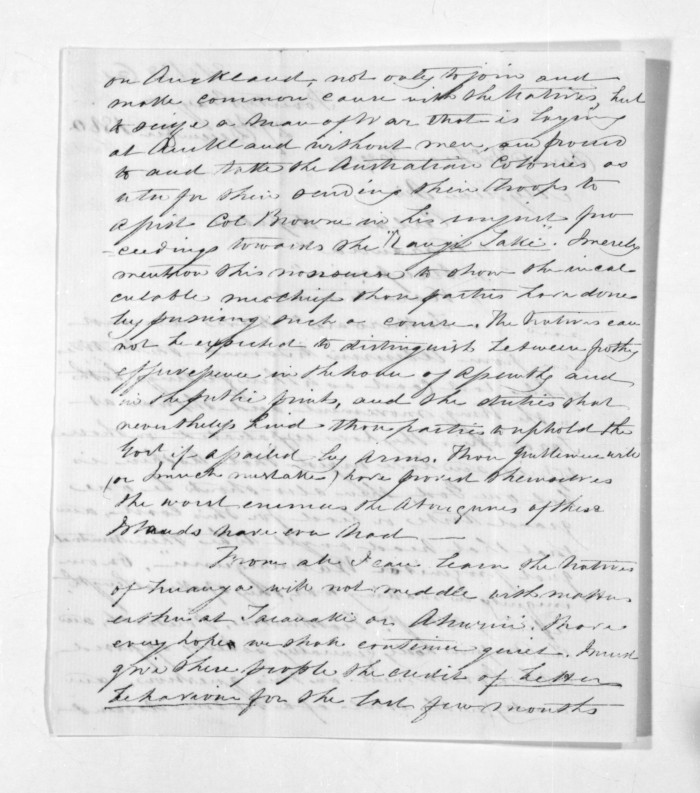 on Auckland, not only to join and
make common cause with the Natives, but
to seize a Man of War that is laying
at Auckland without men, and proceed
to and take the Australian Colonies as
utu for their sending their troops to
assist Col Browne in his unjust pro
-ceedings towards the "Rangi Take". I merely
mention this nonsense to show the incal
culable mischief those parties have done
by pursuing such a course. The Natives can
not be expected to distinguish between frothy
effervesence in the house of Assembly and
in the public prints, and the duties that
nevertheless bind those parties to uphold the
Govt if assailed by arms. Those gentlemen will
(or I much mistake) have proved themselves
the worst enemies the Aborigines of these
Islands have ever had —
From all I can learn the Natives
of will not meddle with matters
either at Taranaki or Ahuriri. I have
every hope we shall continue quiet. I must
give these people the credit of better
behaviour for the last few months